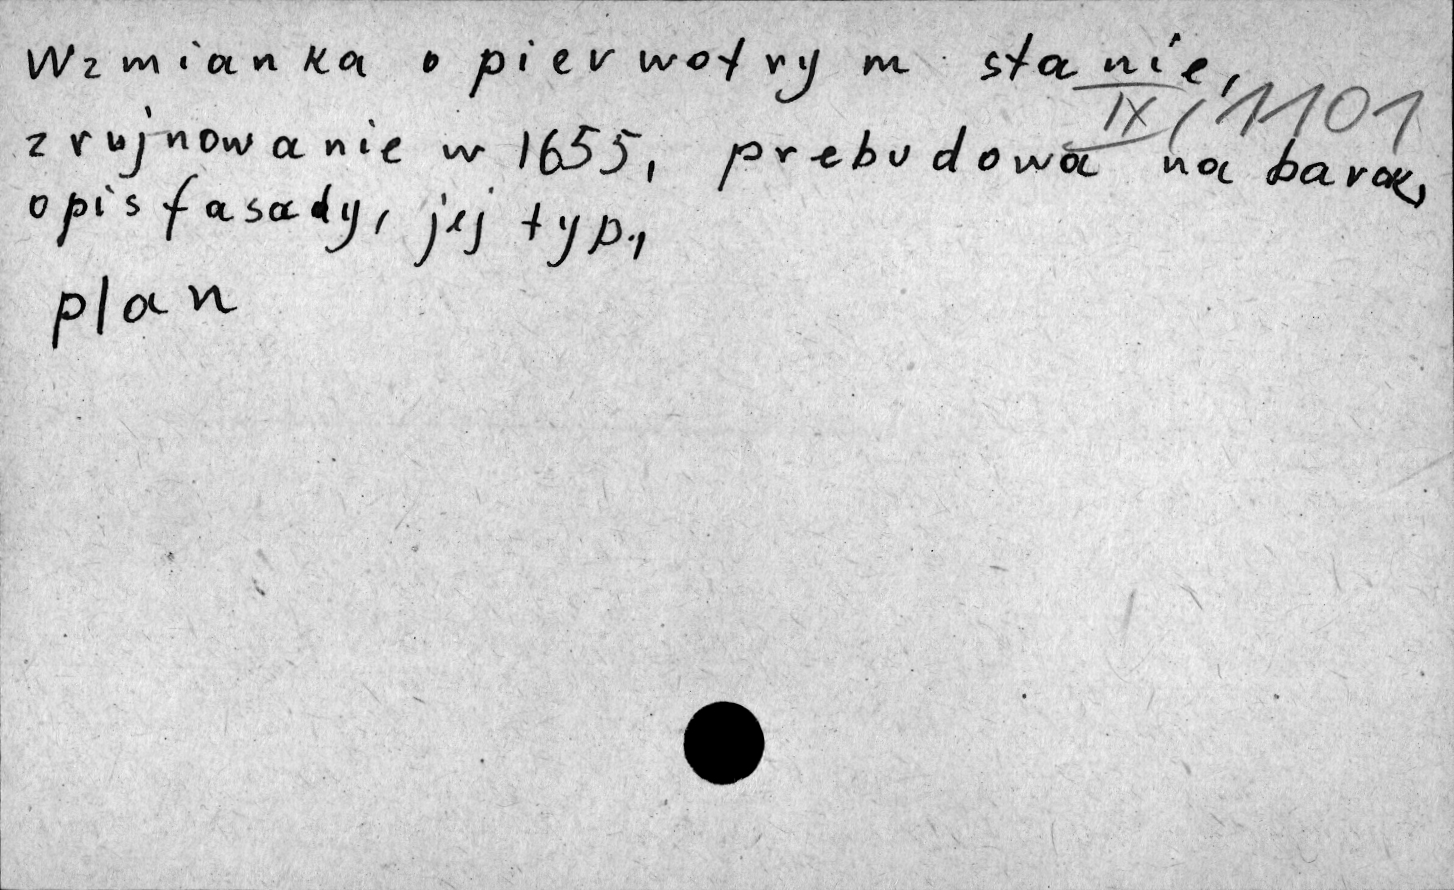 Wzmianka o pierwotnym stanie,
IX/1101
zrujnowanie w 1655, prebudowa na barok,
opis fasady, jej typ.,
plan